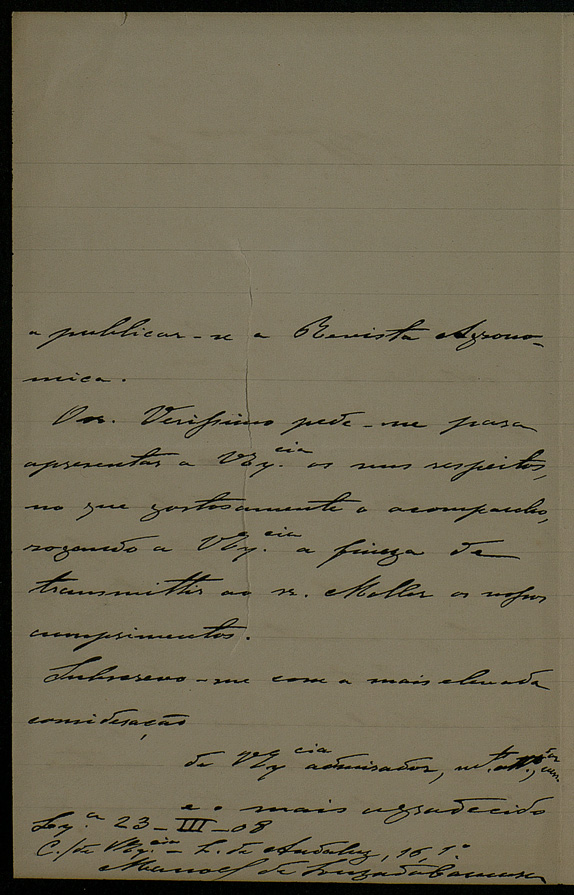 a publicar-se a Revista Agrono-
mica.
O sr. Verissimo pede-me para
apresentar a V. Ex.cia os seus respeitos,
no que gostosamente o acompanho,
rogando a V. Ex.cia a fineza de
transmittir ao sr. Moller os nossos
cumprimentos.
Subscrevo-me com a mais elevada
consideração
de V. Ex.cia admirador, m.to
e o mais agradecido
23-III-08
C./de V. Ex.cia - L. do Andaluz, 16, 1.º
Manoel de Souza da Camara